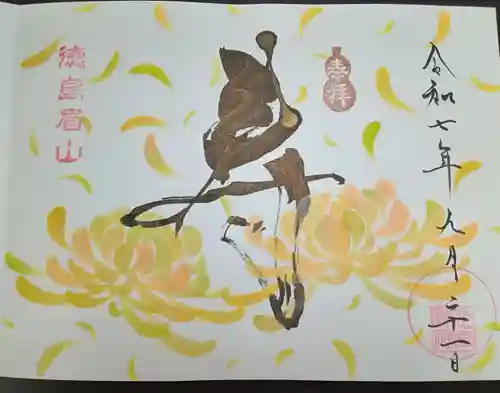 令和七年九月二十一日
奉拝
徳島眉山